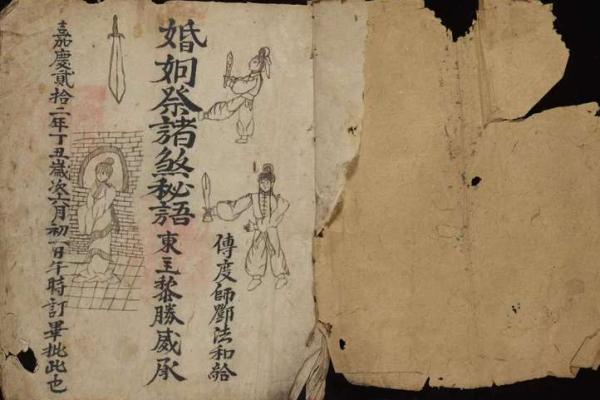 傳度師鄧法和給
婚姻祭諸煞秘語 東主黎勝威承
嘉慶貳拾二年丁丑歲次六月初一日午時訂畢批此也